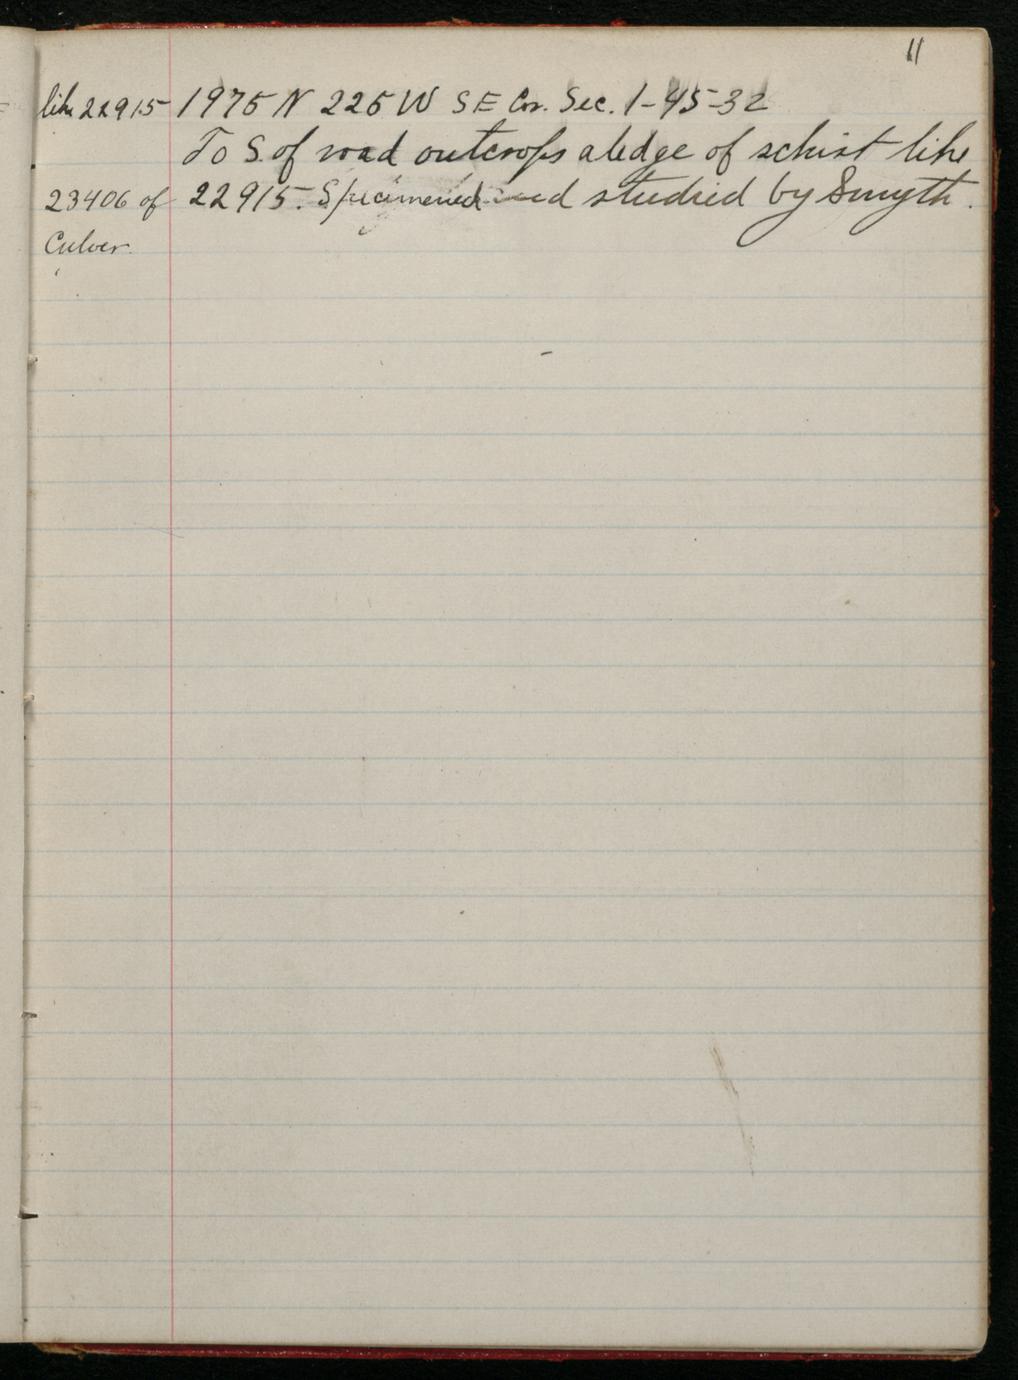 11
like 22915 1975 N 225 W SE Cor. Sec. 1-45-32
To S. of road outcrops a ledge of schist like
23406 of 22915. Specimened and studied by Smyth.
Culver.